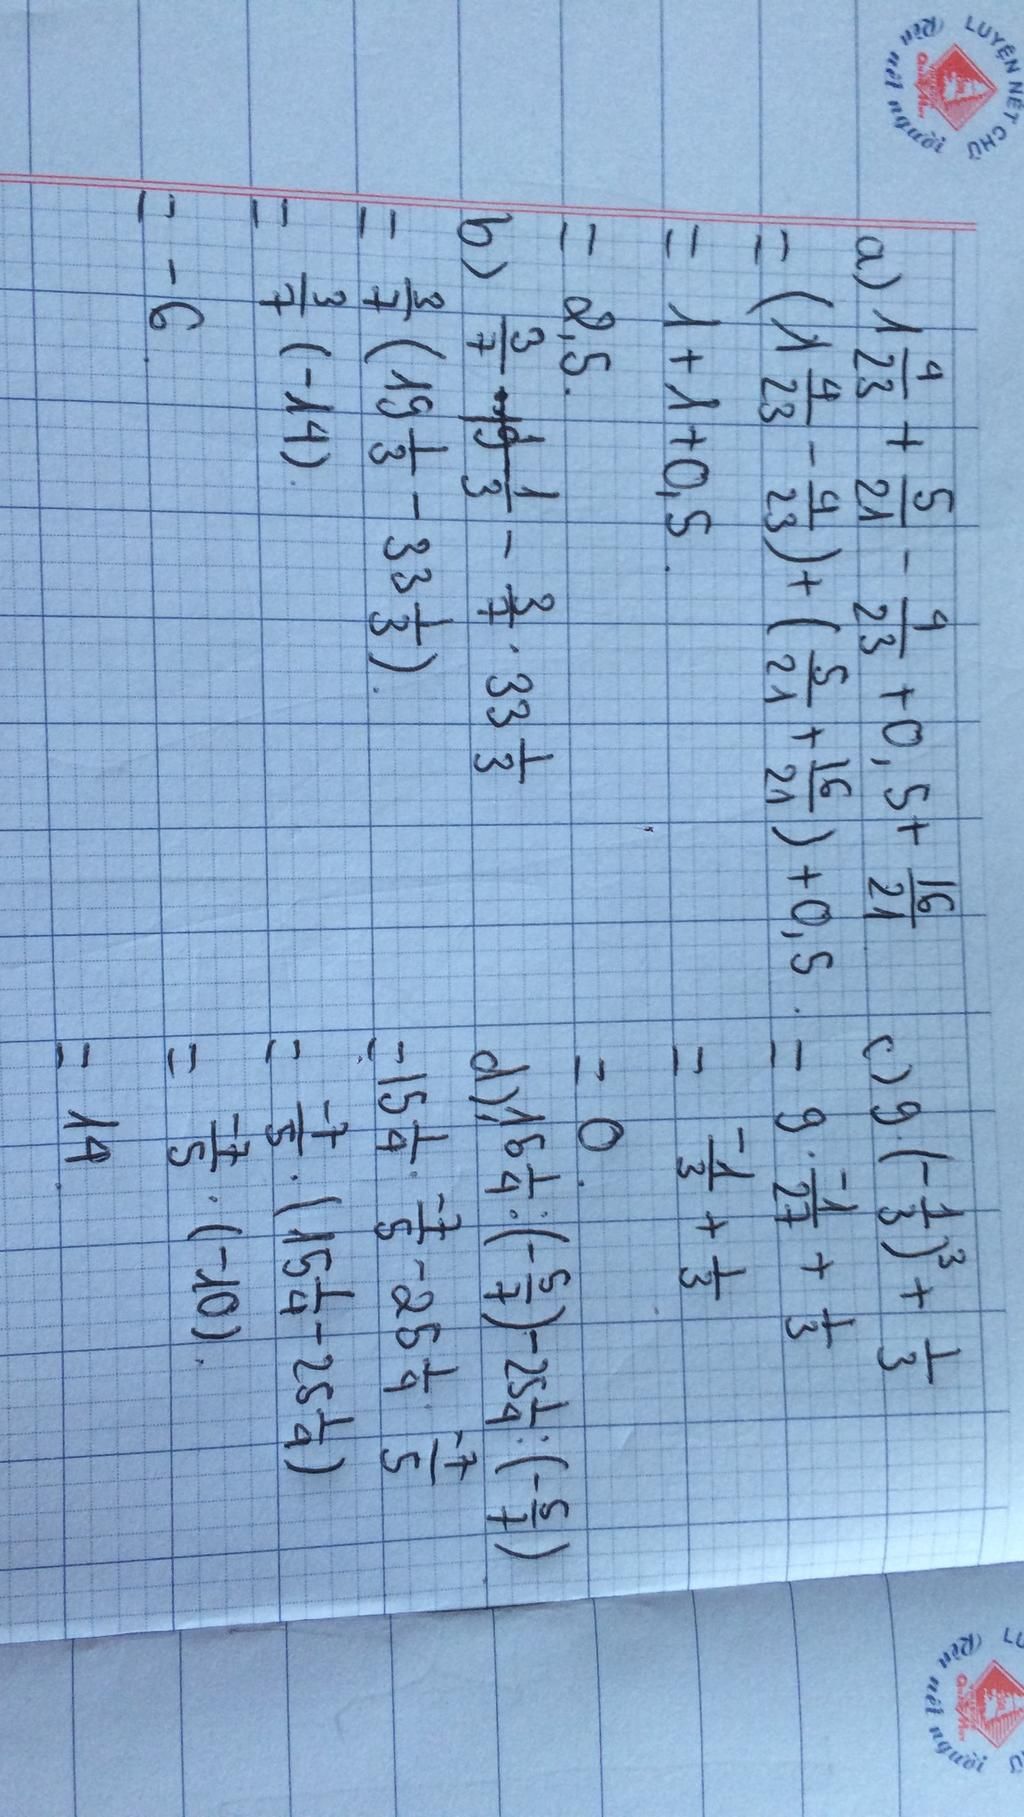 LUYỆN NÉT CHỮ
Rèn nết người
a) 1 4/23 + 5/21 - 4/23 + 0,5 + 16/21
= (1 4/23 - 4/23) + (5/21 + 16/21) + 0,5.
= 1 + 1 + 0,5.
= 2,5.
b) 3/7 . 19 1/3 - 3/7 . 33 1/3
= 3/7 (19 1/3 - 33 1/3).
= 3/7 (-14).
= -6
c) 9.(-1/3)³ + 1/3
= 9 . -1/27 + 1/3
= -1/3 + 1/3
= 0.
d) 15 1/4 : (-5/7) - 25 1/4 : (-5/7)
= 15 1/4 . -7/5 - 25 1/4 . -7/5
= -7/5 . (15 1/4 - 25 1/4)
= -7/5 . (-10).
= 14.
Rèn nết người